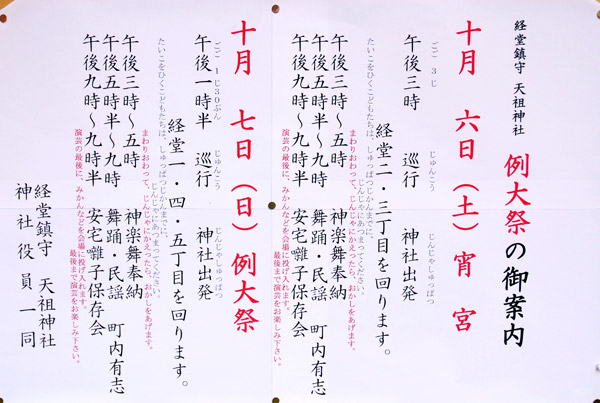 経堂鎮守 天祖神社
例大祭の御案内
十月 六日(土)宵宮
ごご 3じ じゅんこう じんじゃしゅっぱつ
午後三時 巡行 神社出発
経堂二・三丁目を回ります。
たいこをひくこどもたちは、しゅっぱつじかんまでに、じんじゃにあつまってください。
まわりおわって、じんじゃにかえったら、おかしをあげます。
午後三時〜五時 神楽舞奉納
午後五時半〜九時 舞踊・民謡 町内有志
午後九時〜九時半 安宅囃子保存会
演芸の最後に、みかんなどを会場に投げ入れます。
最後まで演芸をお楽しみ下さい。
十月 七日(日)例大祭
ごご 1じ30ぷん じゅんこう じんじゃしゅっぱつ
午後一時半 巡行 神社出発
経堂一・四・五丁目を回ります。
たいこをひくこどもたちは、しゅっぱつじかんまでに、じんじゃにあつまってください。
まわりおわって、じんじゃにかえったら、おかしをあげます。
午後三時〜五時 神楽舞奉納
午後五時半〜九時 舞踊・民謡 町内有志
午後九時〜九時半 安宅囃子保存会
演芸の最後に、みかんなどを会場に投げ入れます。
最後まで演芸をお楽しみ下さい。
経堂鎮守 天祖神社
神社役員一同